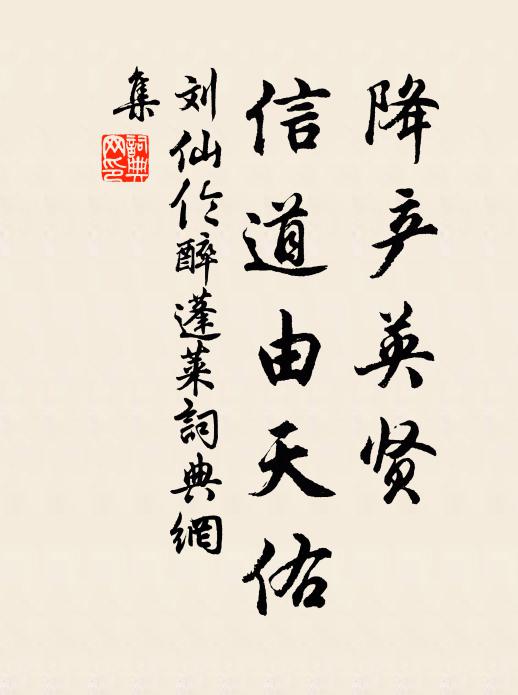 降产英贤
信道由天佑
刘仙伦醉蓬莱词典網
集
詞典网印